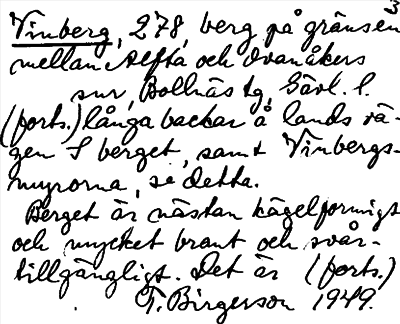 3
Vinberg, 278, berg på gränsen
mellan Alfta och Ovanåkers
snr, Bollnäs tg Gävl. l.
(forts.) långa backar å lands vä-
gen S berget, samt Vinbergs-
myrorna, se detta.
Berget är nästan kägelformigt
och mycket brant och svår-
tillgängligt. Det är (forts.)
T. Birgerson 1949.